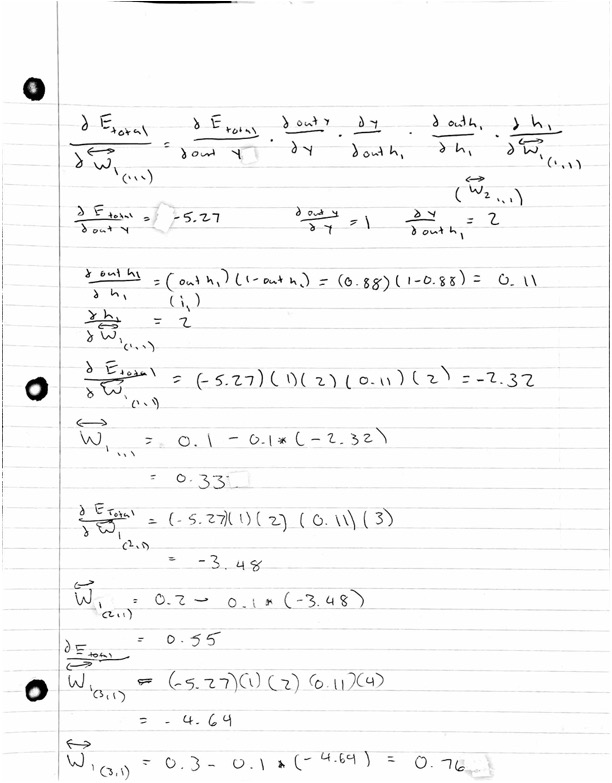 ∂E_total / ∂W↔₁₍₁,₁₎ = ∂E_total / ∂out y · ∂out y / ∂y · ∂y / ∂out h₁ · ∂out h₁ / ∂h₁ · ∂h₁ / ∂W↔₁₍₁,₁₎
(W↔₂ ₁,₁)
∂E_total / ∂out y = -5.27   ∂out y / ∂y = 1   ∂y / ∂out h₁ = 2
∂out h₁ / ∂h₁ = (out h₁)(1-out h₁) = (0.88)(1-0.88) = 0.11
(i₁)
∂h₁ / ∂W↔₁₍₁,₁₎ = 2
∂E_total / ∂W↔₁₍₁,₁₎ = (-5.27)(1)(2)(0.11)(2) = -2.32
W↔₁ ₁,₁ = 0.1 - 0.1*(-2.32)
= 0.33
∂E_Total / ∂W↔₁₍₂,₁₎ = (-5.27)(1)(2)(0.11)(3)
= -3.48
W↔₁₍₂,₁₎ = 0.2 - 0.1*(-3.48)
= 0.55
∂E_total / W↔₁₍₃,₁₎ = (-5.27)(1)(2)(0.11)(4)
= -4.64
W↔₁₍₃,₁₎ = 0.3 - 0.1*(-4.64) = 0.76